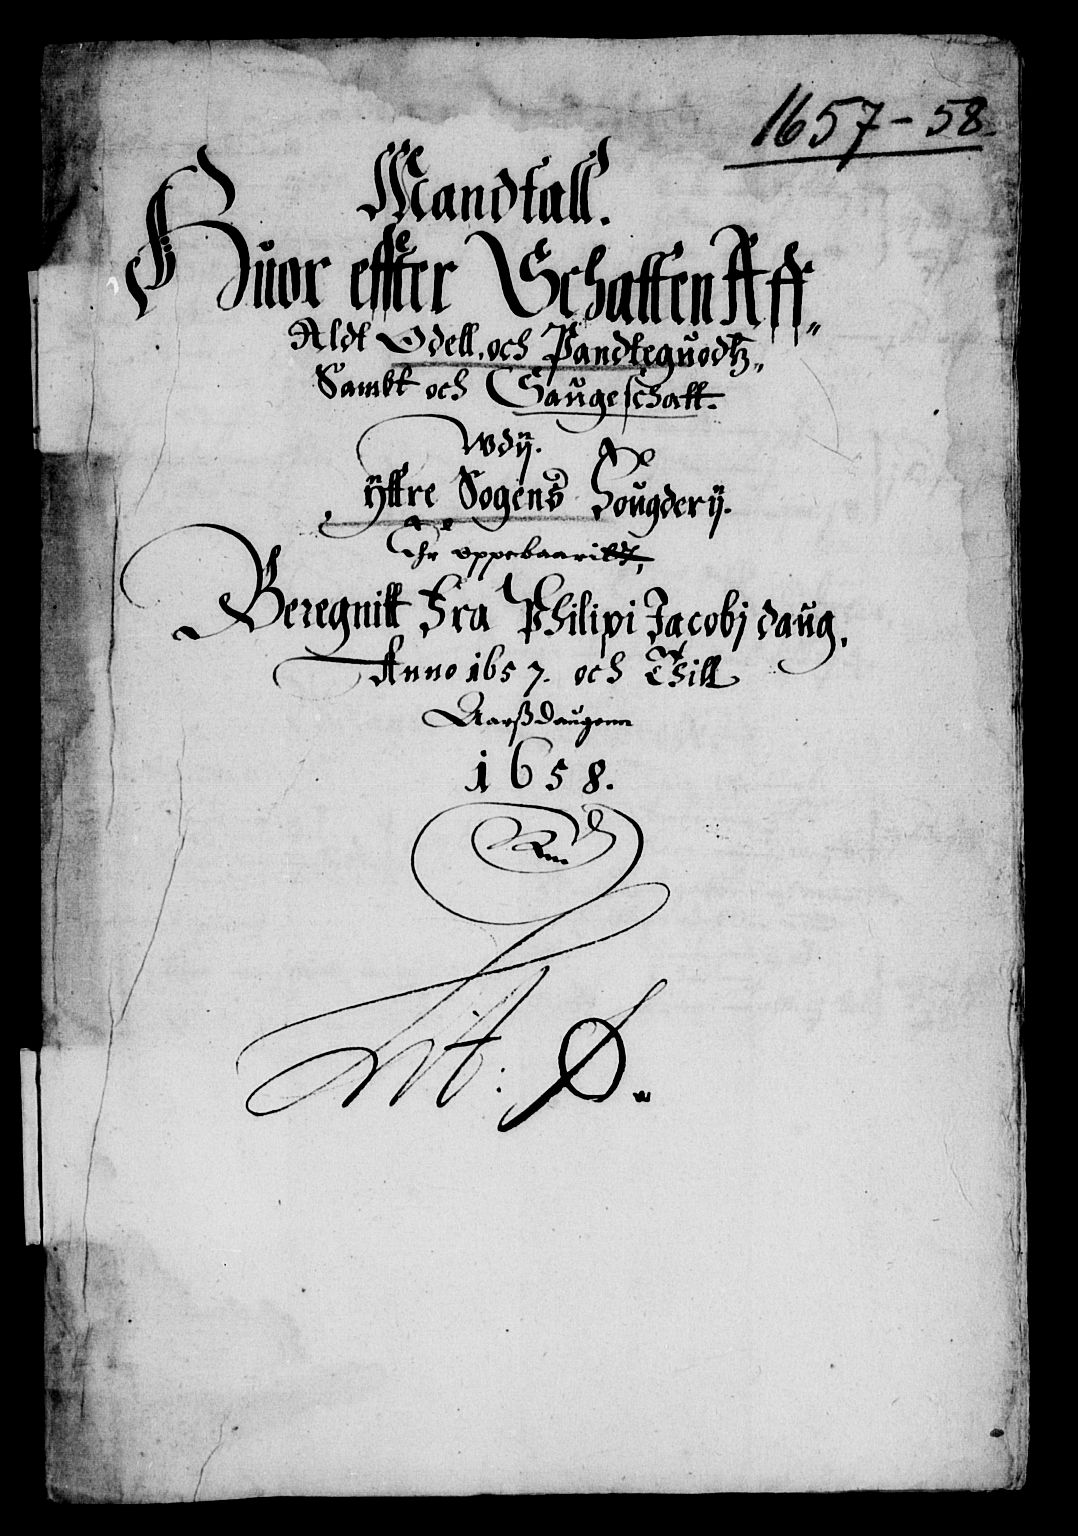 1657-58.
Mandtall.
Huor effter Schatten Aff,,
Aldt Odell, och Pandteguodtz,,
Sambt och Saugeschatt.
Wdij.
Ÿttre Sogens Fougderij.
Er oppebaaridt,
Beregnitt Fra Philipi Jacobj daug,
Anno 1657. och Thill
Aarsz Daugenn
1658.
Lit: Ø.